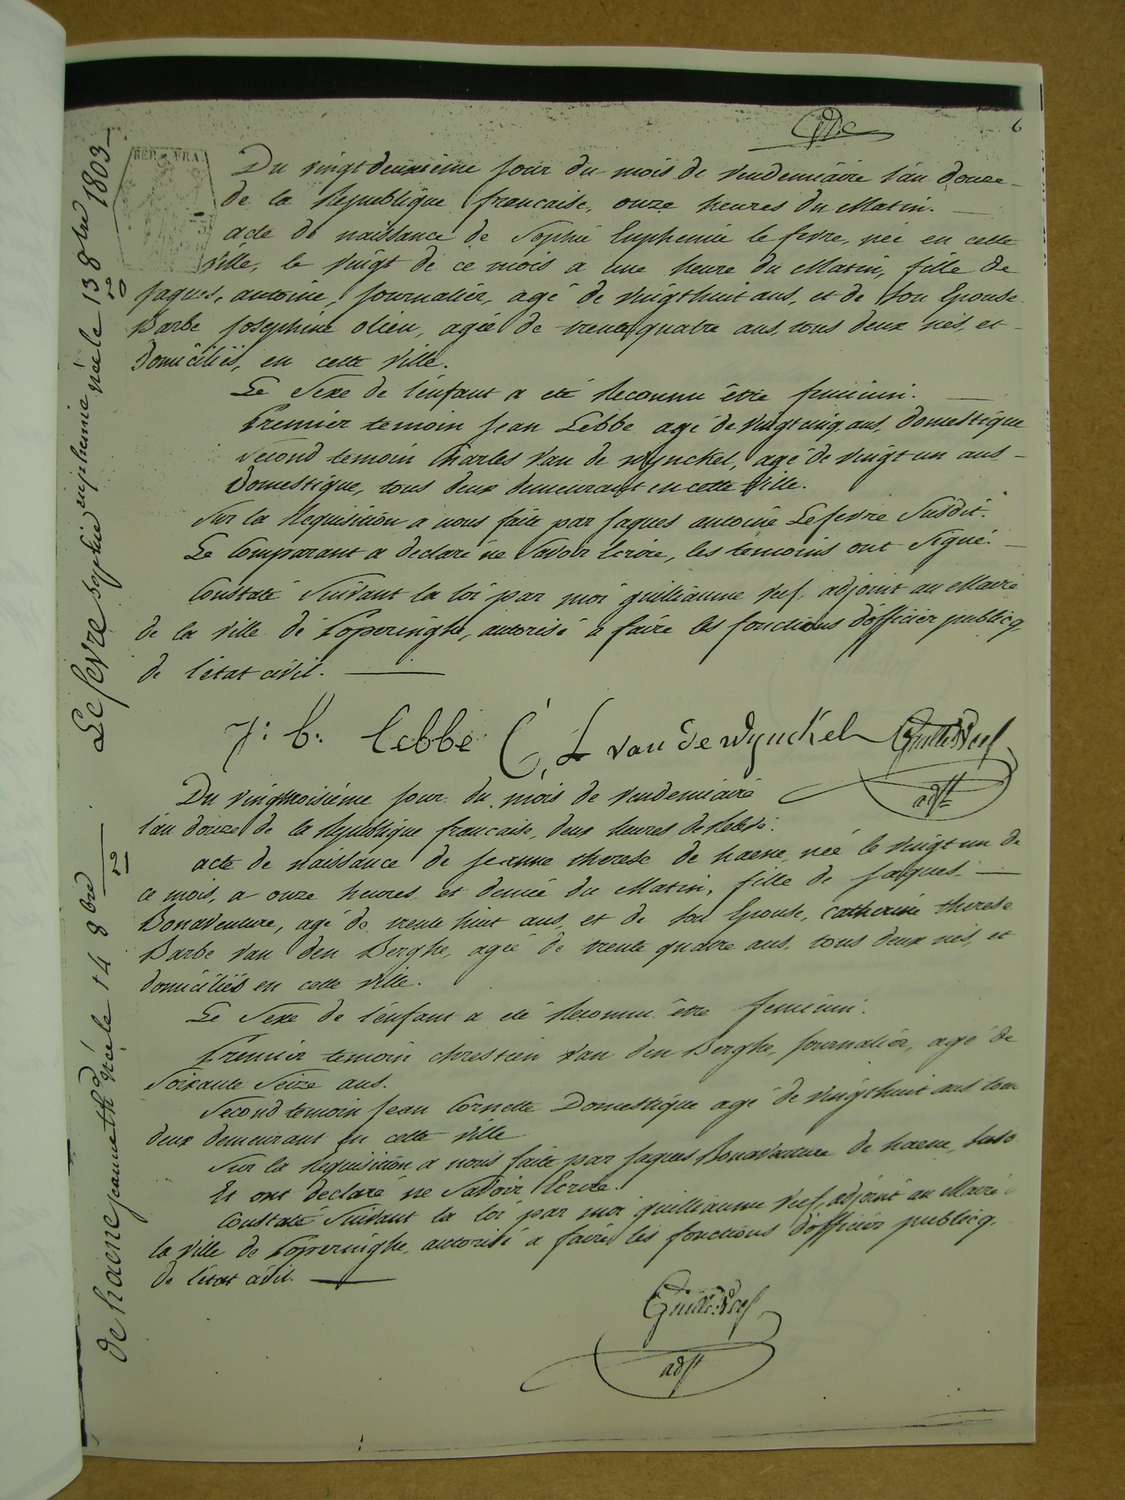 6
REP. FRA.
Du vingtdeuxieme jour du mois de vendemiaire l'an douze
de la Republique francaise, onze heures du Matin.
acte de naissance de Sophie Euphemie le fevre, née en cette
ville, le vingt de ce mois a une heure du Matin, fille de
jaques, antoine, journalier, agé de vingthuit ans, et de son Epouse
Barbe josephine olieu, agée de trente quatre ans, tous deux nés, et
Domiciliés, en cette ville.
Le Sexe de l'enfant a eté Reconnu être feminin.
Premier temoin jean Lebbe agé de vingtcinq ans, domestique
Second temoin Charles Van de Wynckel, agé de vingt un ans
Domestique, tous deux demeurant en cette ville.
Sur la Requisition a nous faite par jaques antoine Lefevre Susdit.
Le Comparant a declaré ne Savoir Ecrire, les temoins ont Signé.
Constaté Suivant la loi par moi guilliaume Vuf, adjoint au Maire
de la ville de Poperinghe, autorisé a faire les fonctions d'officier publicq
de l'état civil.
j: b. lebbe C, L van de wynckel
adjt
Du vingttroisieme jour du mois de vendemiaire
l'an douze de la Republique francaise, deux heures de Relevé.
acte de naissance de jeanne therese de haene, née le vingt un de
ce mois, a onze heures et demie du Matin, fille de jaques
Bonaventure, agé de trente huit ans, et de son Epouse, catherine therese
Barbe van den Berghe, agée de trente quatre ans, tous deux nés, et
domiciliés en cette ville.
Le Sexe de l'enfant a eté Reconnu être feminin.
Premier temoin chrestien Van den Berghe, journalier, agé de
Soixante Seize ans.
Second temoin jean Cornette Domestique agé de vingthuit ans tous
deux demeurant en cette ville
Sur la Requisition a nous faite par jaques Bonaventure de haene, Susd
Et ont declaré ne Savoir Ecrire.
Constaté Suivant la loi par moi guilliaume Vuf, adjoint au Maire
la ville de Poperinghe, autorisé a faire les fonctions d'officier publicq
de l'état civil.
adjt
Le fevre sophie euphemie née le 13 8bre 1803
20
de haene jeanne th. née le 14 8bre
21